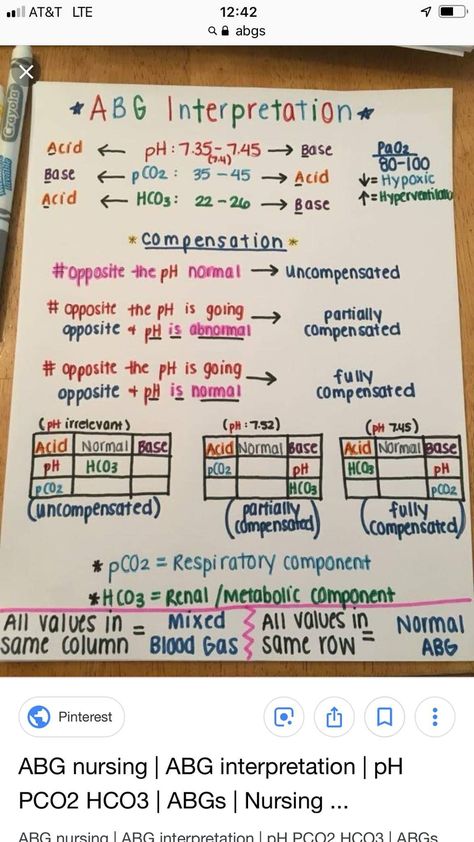 AT&T LTE 12:42
abgs
Crayola
* ABG Interpretation *
Acid ← pH: 7.35-7.45 → Base
(7.4)
Base ← pCO2: 35-45 → Acid
Acid ← HCO3: 22-26 → Base
PaO2
80-100
↓= Hypoxic
↑= Hyperventilatio
* Compensation *
#opposite the pH normal → uncompensated
# opposite the pH is going
opposite + pH is abnormal → partially
compensated
# opposite the pH is going
opposite + pH is normal → fully
compensated
(pH irrelevant)
Acid Normal Base
pH HCO3
pCO2
(uncompensated)
(pH: 7.52)
Acid Normal Base
pCO2 pH
HCO3
(partially
compensated)
(pH 7.45)
Acid Normal Base
HCO3 pH
pCO2
(fully
compensated)
* pCO2 = Respiratory component
* HCO3 = Renal/Metabolic component
All values in
same column = Mixed
Blood Gas
All values in
same row = Normal
ABG
Pinterest
ABG nursing | ABG interpretation | pH
PCO2 HCO3 | ABGs | Nursing ...
ABG nursing | ABG interpretation | pH PCO2 HCO3 | ABGs